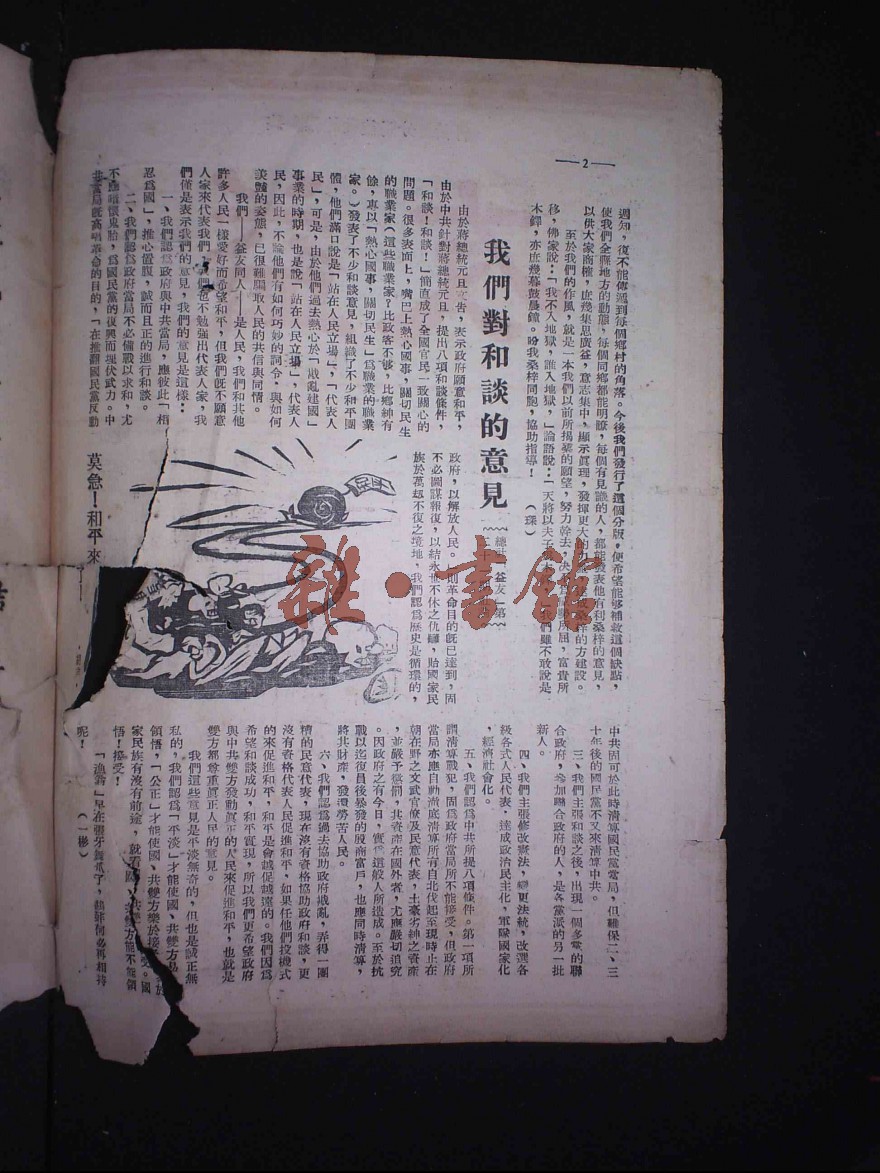 —2—
週知，復不能傳遞到每個鄉村的角落。今後我們發行了這個分版，便希望能够補救這個缺點，
使我們全縣地方的動態，每個同鄉都能明瞭，每個有見識的人，都能發表他有利桑梓的意見，
以供大家商榷，庶幾集思廣益，意志集中，顯示眞理，發揮更大的力量，桑梓的方建設。
至於我們的作風，就是一本我們以前所揭櫫的願望，努力幹去，決所屈，富貴所
移，佛家說：「我不入地獄，誰入地獄，」論語說：「天將以夫子我們雖不敢說是
木鐸，亦庶幾暮鼓晨鐘。盼我桑梓同胞，協助指導！（琛）
我們對和談的意見
總社益友
由於蔣總統元旦文告，表示政府願意和平，
由於中共針對蔣總統元旦，提出八項和談條件，
「和談！和談！」簡直成了全國官民一致關心的
問題。很多表面上，嘴巴上熱心國事，關切民生
的職業家（這些職業家？比政客不够，比鄉紳有
餘，專以「熱心國事，關切民生」爲職業的職業
家。）發表了不少和談意見，組織了不少和平團
體，他們滿口說是「站在人民立場」，「代表人
民」，可是，由於他們過去熱心於「戡亂建國」
事業的時期，也是說「站在人民立場」，代表人
民，因此，不論他們有如何巧妙的詞令，與如何
美豔的姿態，已很難騙取人民的共信與同情。
我們——益友同人——是人民，我們和其他
許多人民一樣愛好而希望和平，但我們旣不願意
人家來代表我們，我們也不勉強出代表人家，我
們僅是表示我們的意見，我們的意見是這樣：
一、我們認爲政府與中共當局，應彼此「相
忍爲國」，推心置腹，誠而且正的進行和談。
二、我們認爲政府當局不必備戰以求和，尤
不應暗懷鬼胎，爲國民黨的復興而埋伏武力。中
共當局旣高唱革命的目的，「在推翻國民黨反動
政府，以解放人民。」則革命目的旣已達到，固
不必圖謀報復，以結永世不休之仇讎，貽國家民
族於萬刼不復之境地，我們認爲歷史是循環的，
和平
莫急！和平來
中共固可於此時清算國民黨當局，但難保二、三
十年後的國民黨不又來清算中共。
三、我們主張和談之後，出現一個多黨的聯
合政府，參加聯合政府的人，是各黨派的另一批
新人。
四、我們主張修改憲法，變更法統，改選各
級各式人民代表，達成政治民主化，軍隊國家化
，經濟社會化。
五、我們認爲中共所提八項條件。第一項所
謂清算戰犯，固爲政府當局所不能接受，但政府
當局亦應自動澈底清算所有自北伐起至現時止在
朝在野之文武官僚及民意代表，土豪劣紳之資產
，並嚴予懲罰，其資產在國外者，尤應嚴切追究
。因政府之有今日，實爲這般人所造成。至於抗
戰以迄復員後暴發的股商富戶，也應同時清算，
將其財產，發還勞苦人民。
六、我們認爲過去協助政府戡亂，弄得一團
糟的民意代表，現在沒有資格協助政府和談，更
沒有資格代表人民促進和平，如果任他們投機式
的來促進和平，和平是會越促越遠的。我們因爲
希望和談成功，和平實現，所以我們更希望政府
與中共雙方發動眞正的人民來促進和平，也就是
雙方都尊重眞正人民的意見。
我們這些意見是平淡無奇的，但也是誠正無
私的，我們認爲「平淡」才能使國、共雙方易於
領悟，「公正」才能使國、共雙方樂於接受。國
家民族有沒有前途，就看國、共雙方能不能領
悟！接受！
「漁翁」早在張牙舞爪了，鷸蚌何必再相持
呢！（一彬）
雜·書館